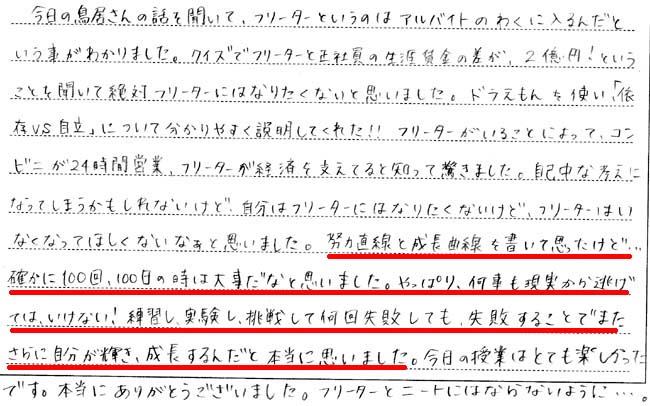 今日の鳥居さんの話を聞いて、フリーターというのはアルバイトのわくに入るんだと
いう事がわかりました。クイズでフリーターと正社員の生涯賃金の差が、2億円!という
ことを聞いて絶対フリーターにはなりたくないと思いました。ドラえもんを使い「依
存VS自立」について分かりやすく説明してくれた!! フリーターがいることによって、コン
ビニが24時間営業、フリーターが経済を支えてると知って驚きました。自己中な考えに
なってしまうかもしれないけど、自分はフリーターにはなりたくないけど、フリーターはい
なくなってほしくないなぁと思いました。努力直線と成長曲線を書いて思ったけど…
確かに100回、100日の時は大事だなと思いました。やっぱり、何事も現実から逃げ
ては、いけない!練習し、実験し、挑戦して何回失敗しても、失敗することでまた
さらに自分が輝き、成長するんだと本当に思いました。今日の授業はとても楽しかった
です。本当にありがとうございました。フリーターとニートにはならないように…。